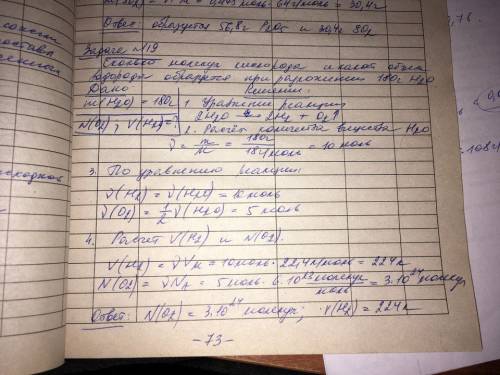 Ответ: образуется 56,8г P₂O₅ и 30,4г SO₂
Задача №19
Сколько молекул кислорода и какой объем
водорода образуется при разложении 180г H₂O
Дано Решение
m(H₂O) = 180г 1. Уравнение реакции
N(O₂), V(H₂) = ? 2H₂O = 2H₂ + O₂↑
2. Расчёт количества вещества H₂O
ν = m/M = 180г/18г/моль = 10 моль
3. По уравнению реакции
ν(H₂) = ν(H₂O) = 10 моль
ν(O₂) = 1/2 ν(H₂O) = 5 моль
4. Расчет V(H₂) и N(O₂).
V(H₂) = νVм = 10 моль · 22,4 л/моль = 224 л
N(O₂) = νNₐ = 5 моль · 6·10²³ молекул/моль = 3·10²⁴ молекул
Ответ: N(O₂) = 3·10²⁴ молекул; V(H₂) = 224 л
-73-